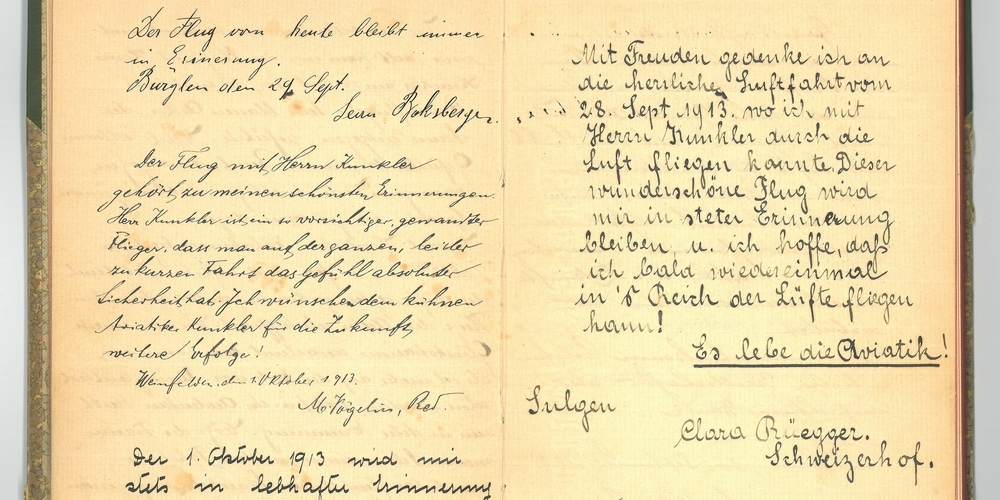 Der Flug vom heute bleibt immer
in Erinerung.
Bürglen den 29. Sept.
Boksberger.
Der Flug mit Herrn Kunkler
gehört zu meinen schönsten Erinnerungen.
Herr Kunkler ist ein so vorsichtiger, gewandter
Flieger, dass man auf der ganzen, leider
zu kurzen Fahrt das Gefühl absoluter
Sicherheit hat. Ich wünsche dem kühnen
Aviatiker Kunkler für die Zukunft,
weitere Erfolge!
Weinfelden, den 1. Oktober 1913.
M. Vögelin, Red.
Der 1. Oktober 1913 wird mir
stets in lebhafter Erinnerung
Mit Freuden gedenke ich an
die herrliche Luftfahrt vom
28. Sept 1913. wo ich mit
Herrn Kunkler durch die
Luft fliegen konnte. Dieser
wunderschöne Flug wird
mir in steter Erinnerung
bleiben, u. ich hoffe, daß
ich bald wiedereinmal
in's Reich der Lüfte fliegen
kann!
Es lebe die Aviatik!
Sulgen
Clara Rüegger.
Schweizerhof.